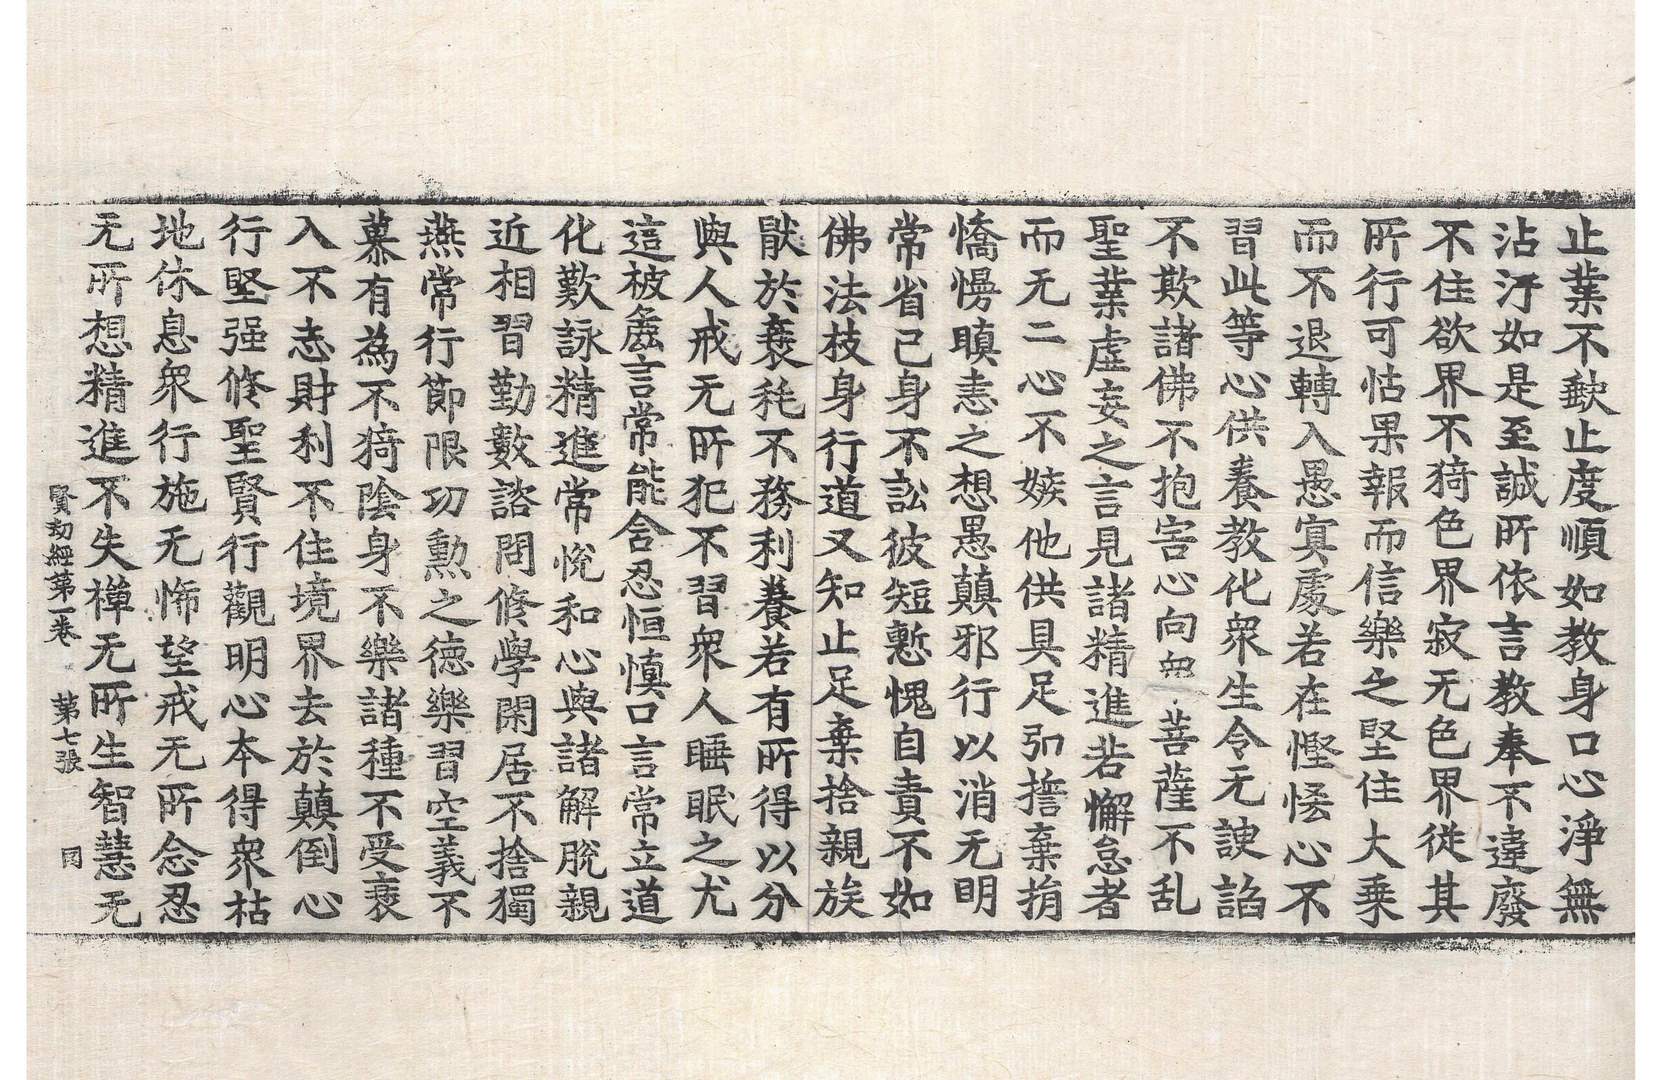 止業不歎止度順如教身口心淨無
沾汙如是至誠所依言教奉不違廢
不住欲界不猗色界寂无色界從其
所行可怙果報而信樂之堅住大乘
而不退轉入愚冥處若在慳悋心不
習此等心供養教化衆生令无諛諂
不欺諸佛不抱害心向 菩薩不乱
聖業虛妄之言見諸精進若懈怠者
而无二心不嫉他供具足弘誓棄捐
憍慢瞋恚之想愚顛邪行以消无明
常省己身不訟彼短慙愧自責不如
佛法枝身行道又知止足棄捨親族
猒於衰秏不務利養若有所得以分
與人戒无所犯不習衆人睡眠之尤
這被麁言常能含忍恒慎口言常立道
化歎詠精進常悅和心與諸解脫親
近相習勤數諮問修學閑居不捨獨
燕常行節限功勲之德樂習空義不
慕有為不猗陰身不樂諸種不受衰
入不志財利不住境界去於顛倒心
行堅强修聖賢行觀明心本得衆枯
地休息衆行施无悕望戒无所念忍
无所想精進不失禪无所生智慧无
賢劫經第一卷 第七張 同